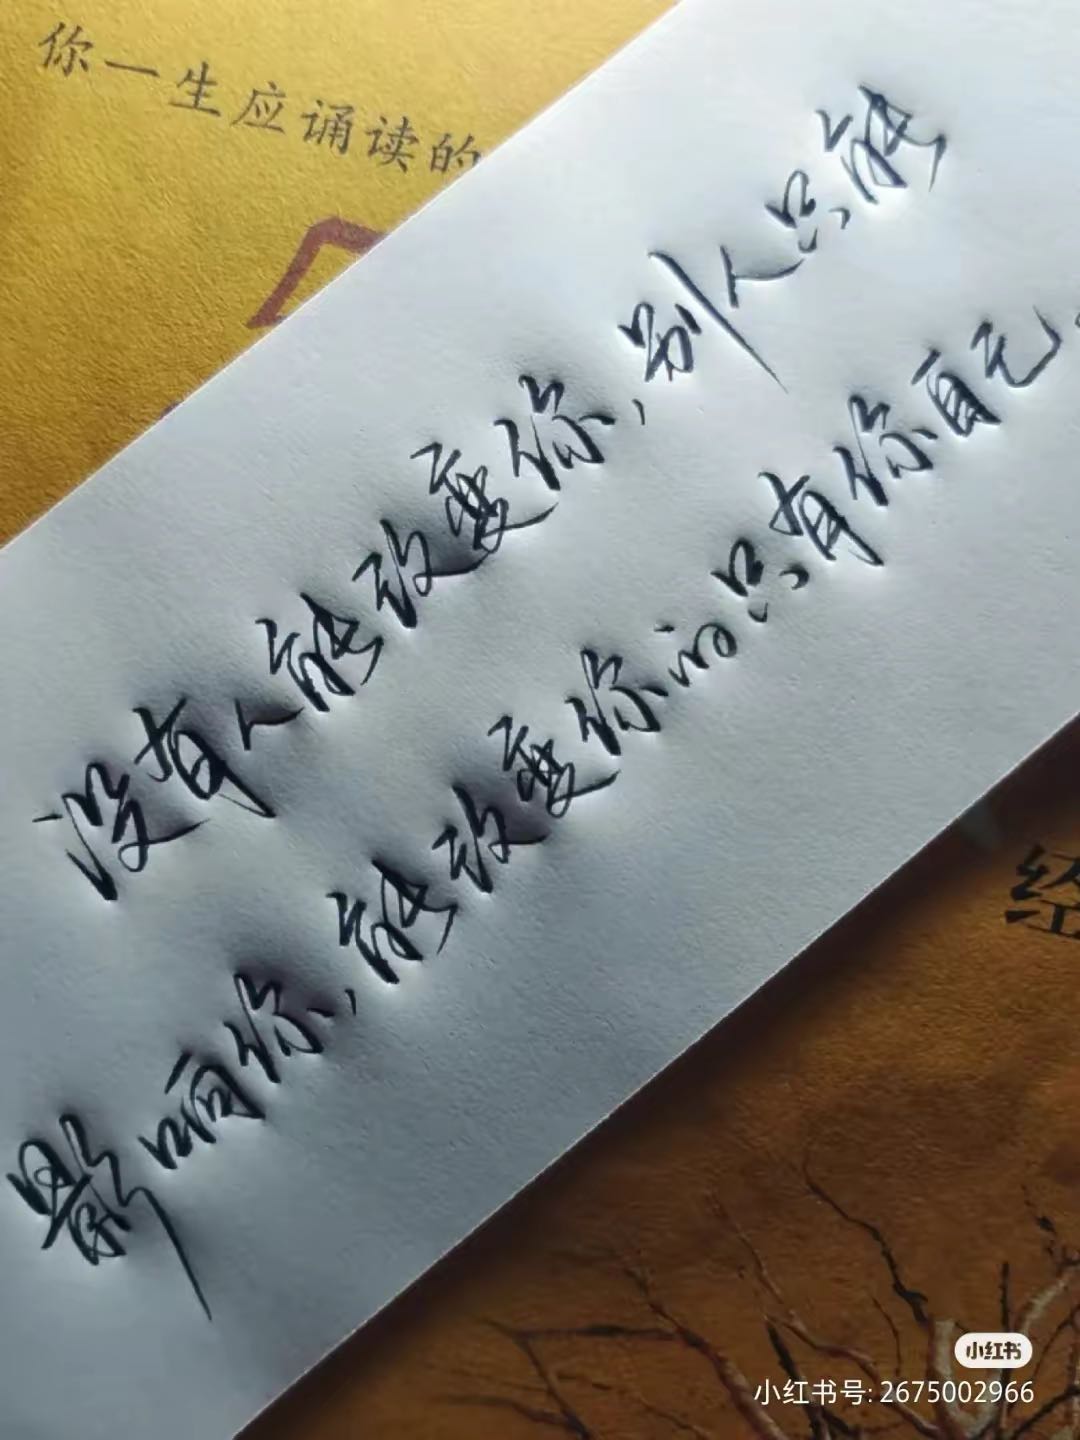 你一生应诵读的
没有人能改变你，别人只能
影响你，能改变你的只有你自己。
经
小红书
小红书号: 2675002966